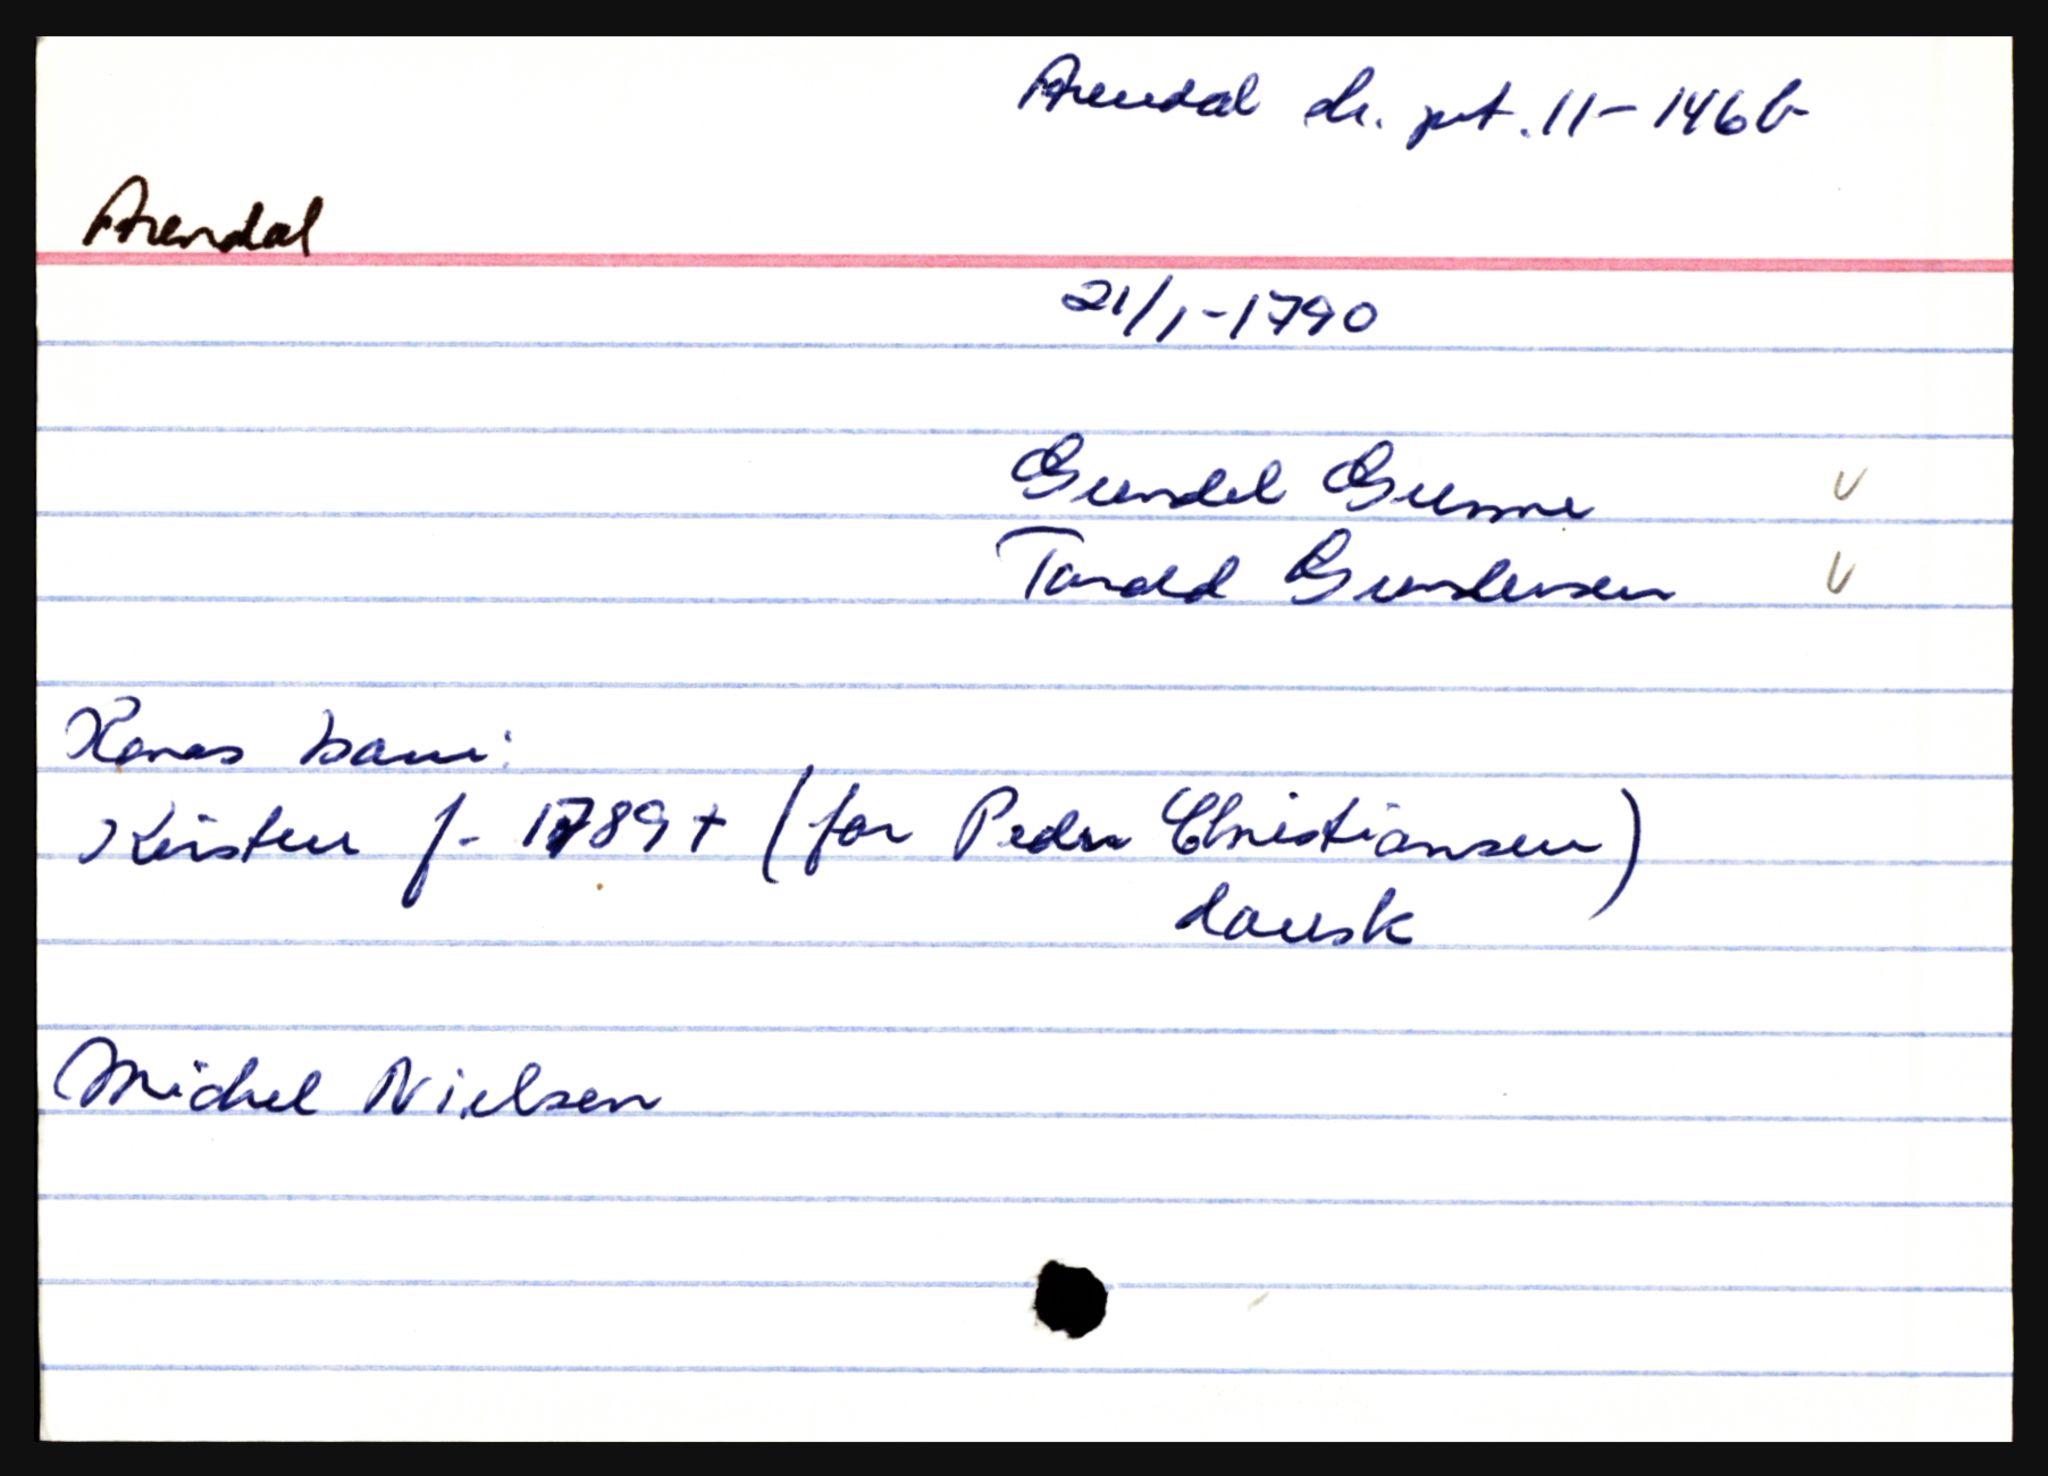 Arendal dr. prt. 11 - 146 b
Arendal
21/1 - 1790
Gundel Gunne v
Tarald Gundersen v
Henes barn:
Kirsten f. 1789 + (far Peder Christiansen)
dansk
Michel Nielsen